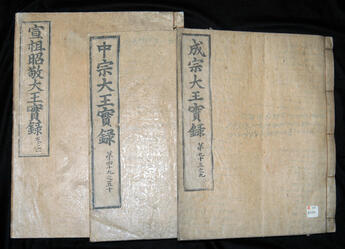 成宗大王實錄
中宗大王實錄
第四十九之五十
宣祖昭敬大王實錄